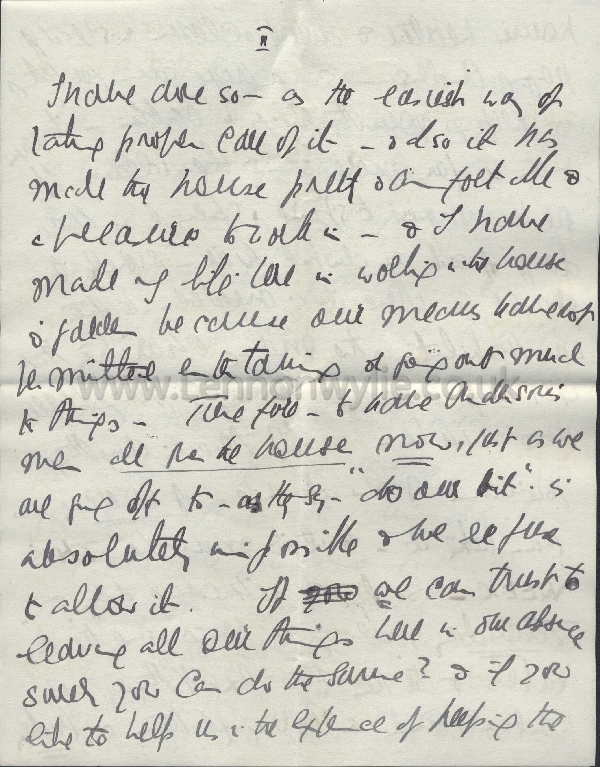 II
I have done so - as the easiest way of
taking proper care of it - & also it has
made the house pretty & comfortable &
a pleasure to work in - & I have
made my life here in working in the house
& garden because our means have not
permitted entertaining or going out much
to things - Therefore - to have Anderson's
men all over the house now, just as we
are going off to - as they say - "do our bit" is
absolutely impossible & we refuse
to allow it. If we can trust to
leaving all our things here in our absence
surely you can do the same? & if you
like to help us in the expence of keeping the
www.Lennonwylie.co.uk